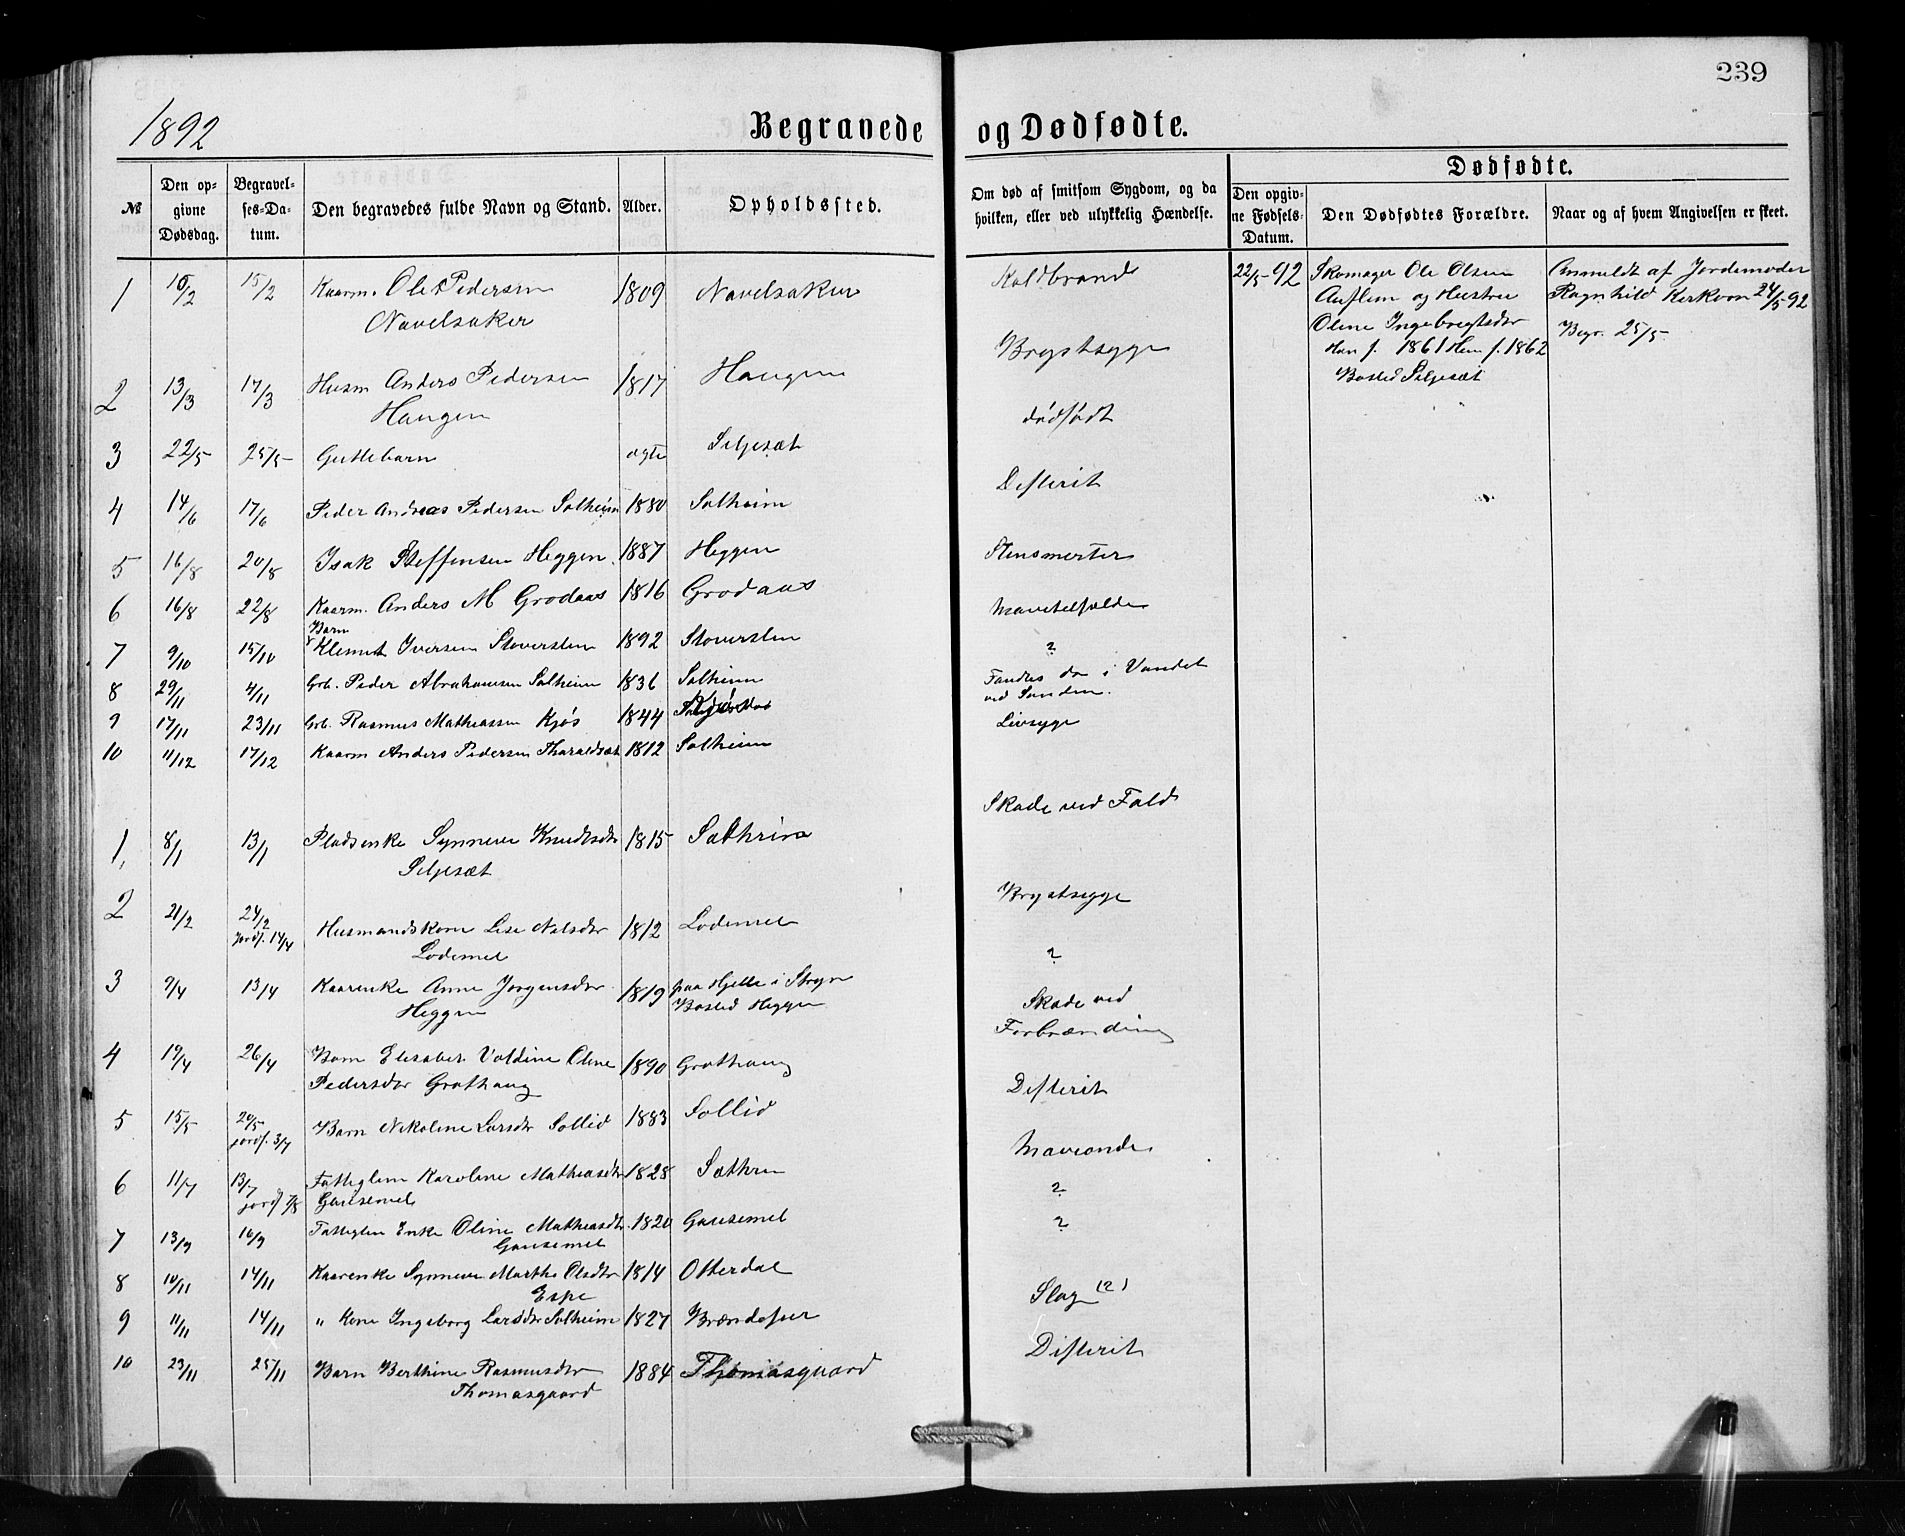 239
1892
Begravede og Dødfødte.
Dødfødte.
№
Den op-
givne
Dødsdag.
Begravel-
ses-Da-
tum.
Den begravedes fulde Navn og Stand.
Alder.
Opholdssted.
Om død af smitsom Sygdom, og da
hvilken, eller ved ulykkelig Hændelse.
Den opgiv-
ne Fødsels-
Datum.
Den Dødfødtes Forældre.
Naar og af hvem Angivelsen er skeet.
1 10/2 15/2 Kaarm. Ole Pedersen 1809 Navelsaker Koldbrand
Navelsaker
2 13/3 17/3 Husm Anders Pedersen 1817 Haugen Brystsyge
Haugen
3 22/5 25/5 Guttebarn ægte Seljesæt dødfødt
4 14/6 17/6 Peder Andreas Pedersen Solheim 1880 Solheim Difterit
5 16/8 20/8 Isak Steffensen Heggen 1887 Heggen Stensmerter
6 16/8 22/8 Kaarm. Anders M Grodaas 1816 Grodaas
Barn
7 9/10 15/10 Klemet Iversen Stoverslen 1892 Stoverslen ?
8 29/11 4/11 Grb. Peder Abrahamsen Solheim 1836 Solheim Fandtes i Vandet
ved Sanden.
9 17/11 23/11 Grb. Rasmus Mathiassen Kjøs 1844 Livsyge
10 11/12 17/12 Kaarm Anders Pedersen Tharaldsæt 1812 Solheim
22/5-92 Skomager Ole Olsen
Aaflem og Hustru
Oline Ingebregtsdtr
Han f. 1861 Hun f. 1862
Bosted Seljesæt
Anmeldt af Jordemoder
Ragnhild Kirkvon 24/5 92
Begr. 25/5
1, 8/1 13/1 Pladsenke Synneve Knudtsdtr 1815 Sæthrin Skade ved Fald
Seljesæt
2 21/2 24/2 Husmandskone Lise Nilsdtr 1812 Lodemel Brystsyge
jordf. 14/4 Lodemel
3 9/4 13/4 Kaarenke Anne Jørgensdtr 1819 paa Hjelle i Stryn ?
Heggen Bosted Heggen
4 19/4 26/4 Barn Elisabet Valdine Oline 1890 Grothaug Skade ved
Pedersdtr Grothaug Forbrænding
5 15/5 20/5 Barn Nikoline Larsdtr Sollid 1883 Sollid Difterit
jordf. 3/7
6 11/7 13/7 Fattiglem Karoline Mathiasdtr 1828 Sæthre Maveonde
jordf 7/8 Gausemel
7 13/9 16/9 Fattiglem Enke Oline Mathiasdtr 1820 Gausemel ?
Gausemel
8 10/11 14/11 Kaarenke Synneve Marthe Olsdtr 1814 Otterdal ?
Espe
9 11/11 14/11 " Kone Ingeborg Larsdtr Solheim 1827 Slag (?)
10 23/11 25/11 Barn Berthine Rasmusdtr 1884 Thomasgaard Difterit
Thomasgaard